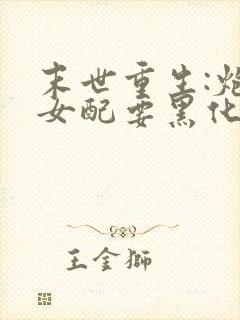 末世重生:炮
女配要黑化
王金獅